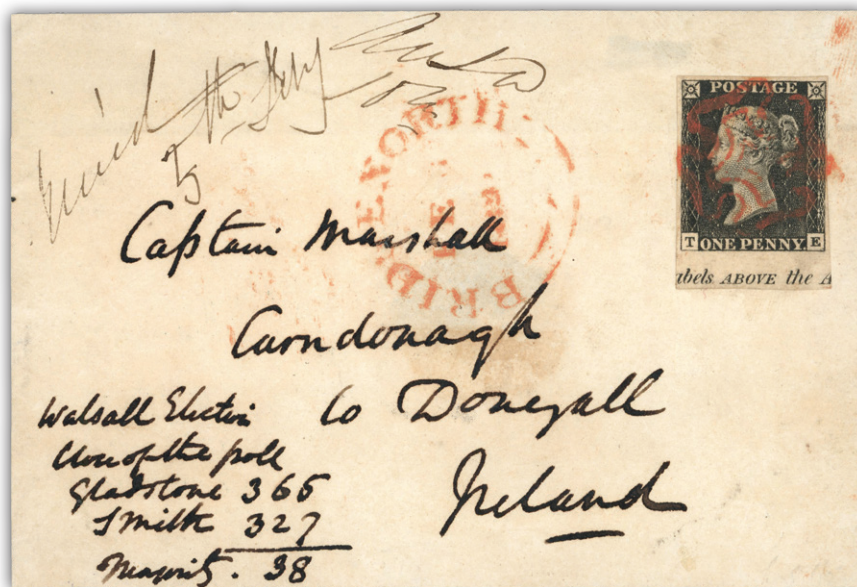 5th Feby
BRIDGENORTH
POSTAGE
T ONE PENNY E
abels ABOVE the A
Captain Marshall
Carndonagh
Co Donegall
Ireland
Walsall Election
Close of the poll
Gladstone 365
Smith 327
Majority. 38